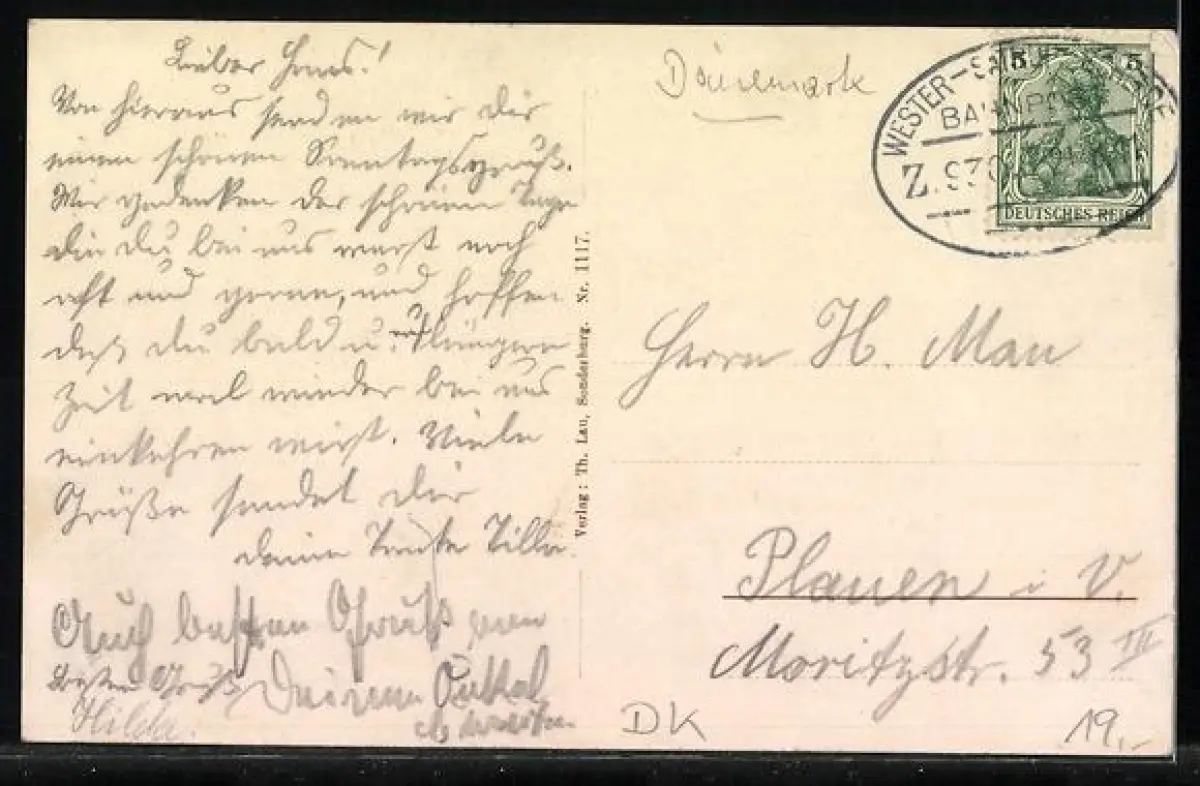 Lieber Hans!
Von hieraus senden wir dir
einen schönen Sonntagsgruß.
Wir gedenken der schönen Tage
die du bei uns warst noch
oft und gerne, und hoffen
daß du bald u. auf längere
Zeit mal wieder bei uns
einkehren wirst. Viele
Grüße sendet dir
deine Tante Tilla
Auch besten Gruß von
Deinem Onkel
besten Gruß
Hilde.
Verlag: Th. Lau, Sonderburg. Nr. 1117.
Dänemark
WESTER-SA
BAHNPO
Z. 930
5 5
DEUTSCHES REICH
Herrn H. Man
Plauen i V.
Moritzstr. 53 III
DK
19,-